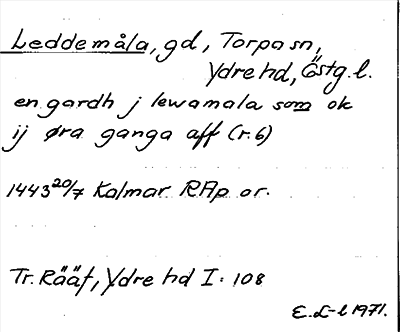 Leddemåla, gd, Torpa sn,
Ydre hd, Östg. l.
en gardh j lewamala som ok
ij øra ganga aff (r. 6)
1443 20/7 Kalmar RAp or.
Tr. Rääf, Ydre hd I: 108
E. L-l 1971.